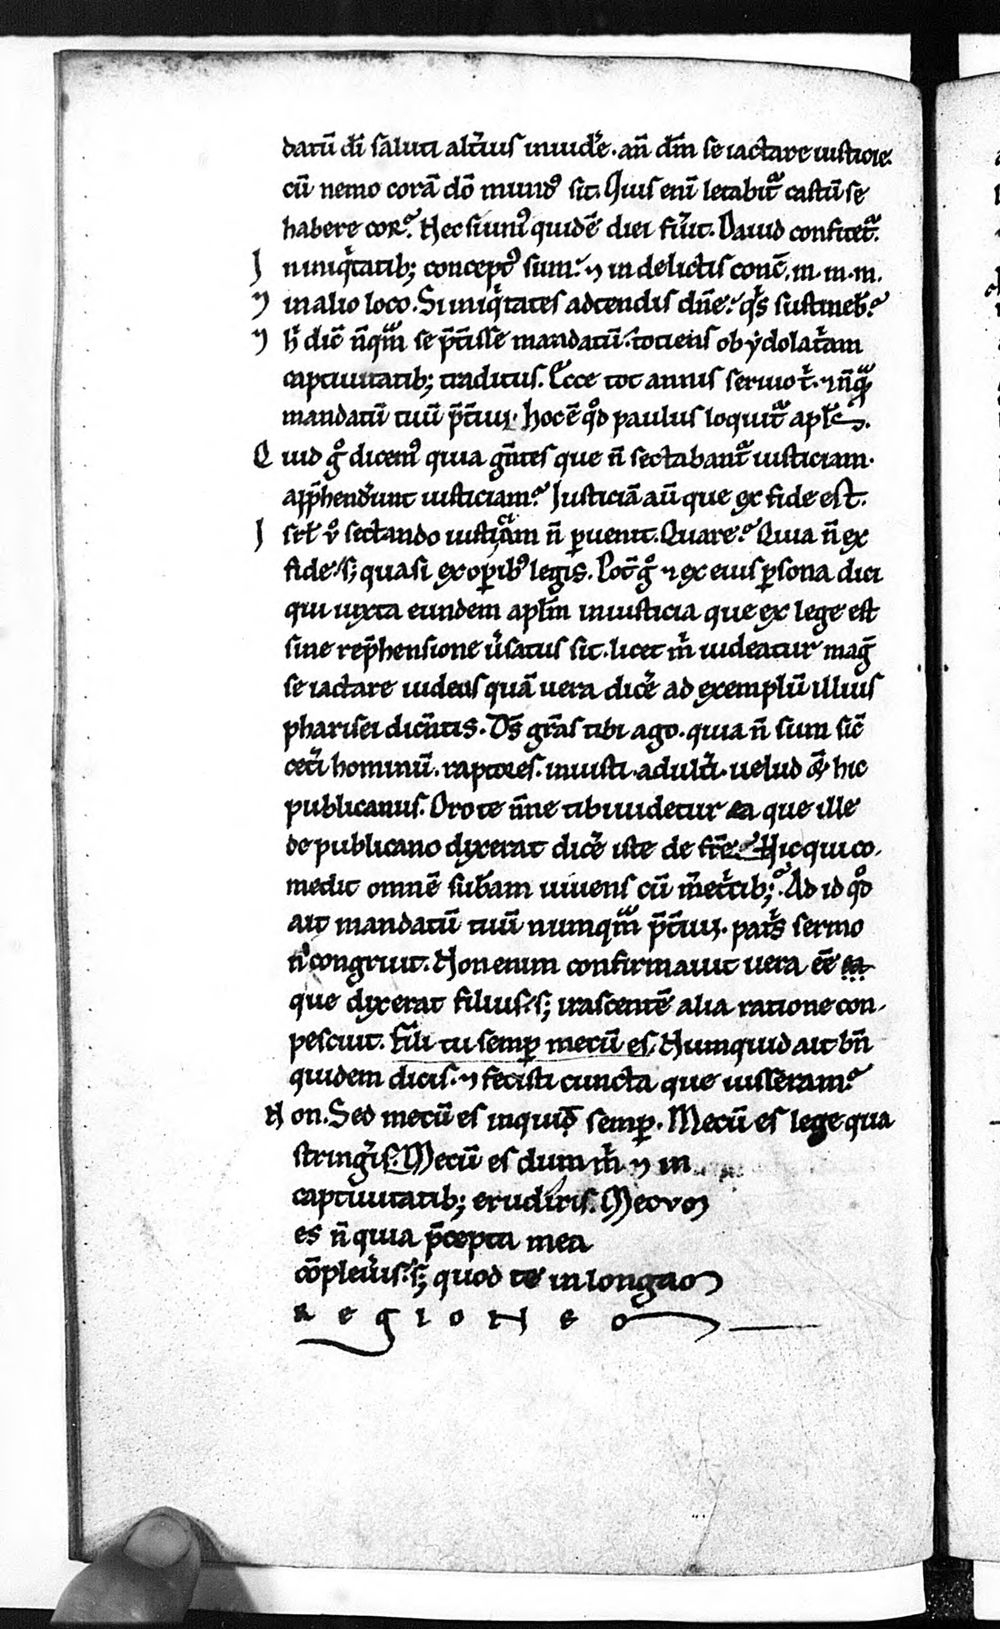 datū di saluti alt̄ius inuid'e. an̄ dīm se iactare iusticie.
cū nemo corā dō mund' sit. Quis enī letabit᷑ castū se
habere cor? Hec si uni' quidē diei fūit. Dauid confitet᷑.
I niniq'tatib; concept' sum. ⁊ in delictis conc̄. m. m. m.
⁊ in alio loco. Si iniq'tates adtendis dn̄e. q's sustineb.?
⁊ h' dic̄ nq̄m se p̄t̄isse mandatū. totiens ob ydolat'iam
captiuitatib; traditus. Ecce tot annis seruio t'. ⁊ nq̄
mandatū tuū p̄t̄iui. hoc ē q°d paulus loquit᷑ apl's.
Q uid g° dicem' quia gn̄tes que n̄ sectabant᷑ iusticiam.
app̄hend'unt iusticiam? Justiciā aū que ex fide est.
I srl' ū sectando iusticiam n̄ puenit. Quare? Quia n̄ ex
fide. s; quasi ex opib' legis. Pot̄ g° ⁊ ex eius psona dici
qui iuxta eundem aplm̄ in iusticia que ex lege est
sine rep̄hensione ū'satus sit. licet m' uideatur maḡ
se iactare iudeus quā uera dic'e ad exemplū illius
pharisei dicn̄tis. Ds̄ grās tibi ago. quia n̄ sum sic̄
cet'i hominū. raptores. iniusti. adult'i. uelud & hic
publicanus. Oro te n̄ne tibi uidetur ea que ille
de publicano dixerat dic'e iste de fr̄e. Hic qui co-
medit omnē sub̄am uiuens cū m'et'cib;. Ad id q°d
ait mandatū tuū numqm̄ p̄t̄iui. pat's sermo
n̄ congruit. Non enim confirmauit uera eē ea
que dixerat filius. s; irascentē alia ratione con-
pescuit. Fili tu semp mecū es. Numquid ait bn̄
quidem dicis. ⁊ fecisti cuncta que iusseram?
N on. Sed mecū es inquid semp. Mecū es lege qua
string'is. Mecū es dum m' ⁊ in
captiuitatib; erudiris. Mecum
es n̄ quia p̄cepta mea
cōpleu'is. s; quod te in longam
regionem